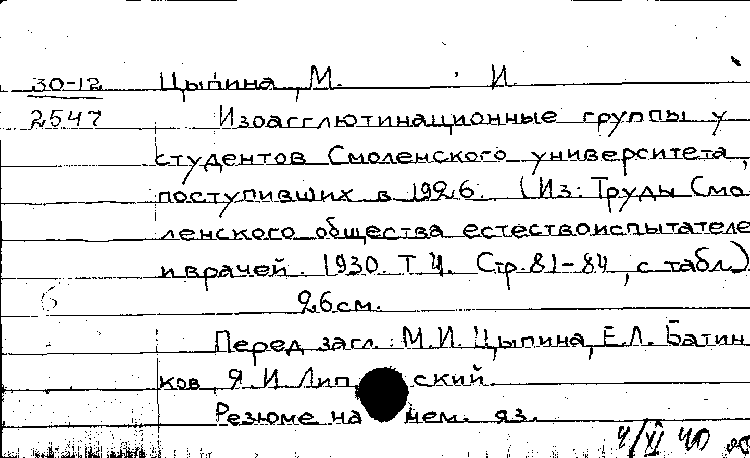 30-12 Цыпина, М. И.
2547 Изоагглютинационные группы у
студентов Смоленского университета,
поступивших в 1926. (Из: Труды Смо
ленского общества естествоиспытателе
и врачей. 1930. Т 4. Стр. 81-84, с табл.)
б 26 см.
Перед загл.: М.И. Цыпина, Е.Л. Батин
ков, Я.И Лип ский.
Резюме на нем. яз.
4/XI 40